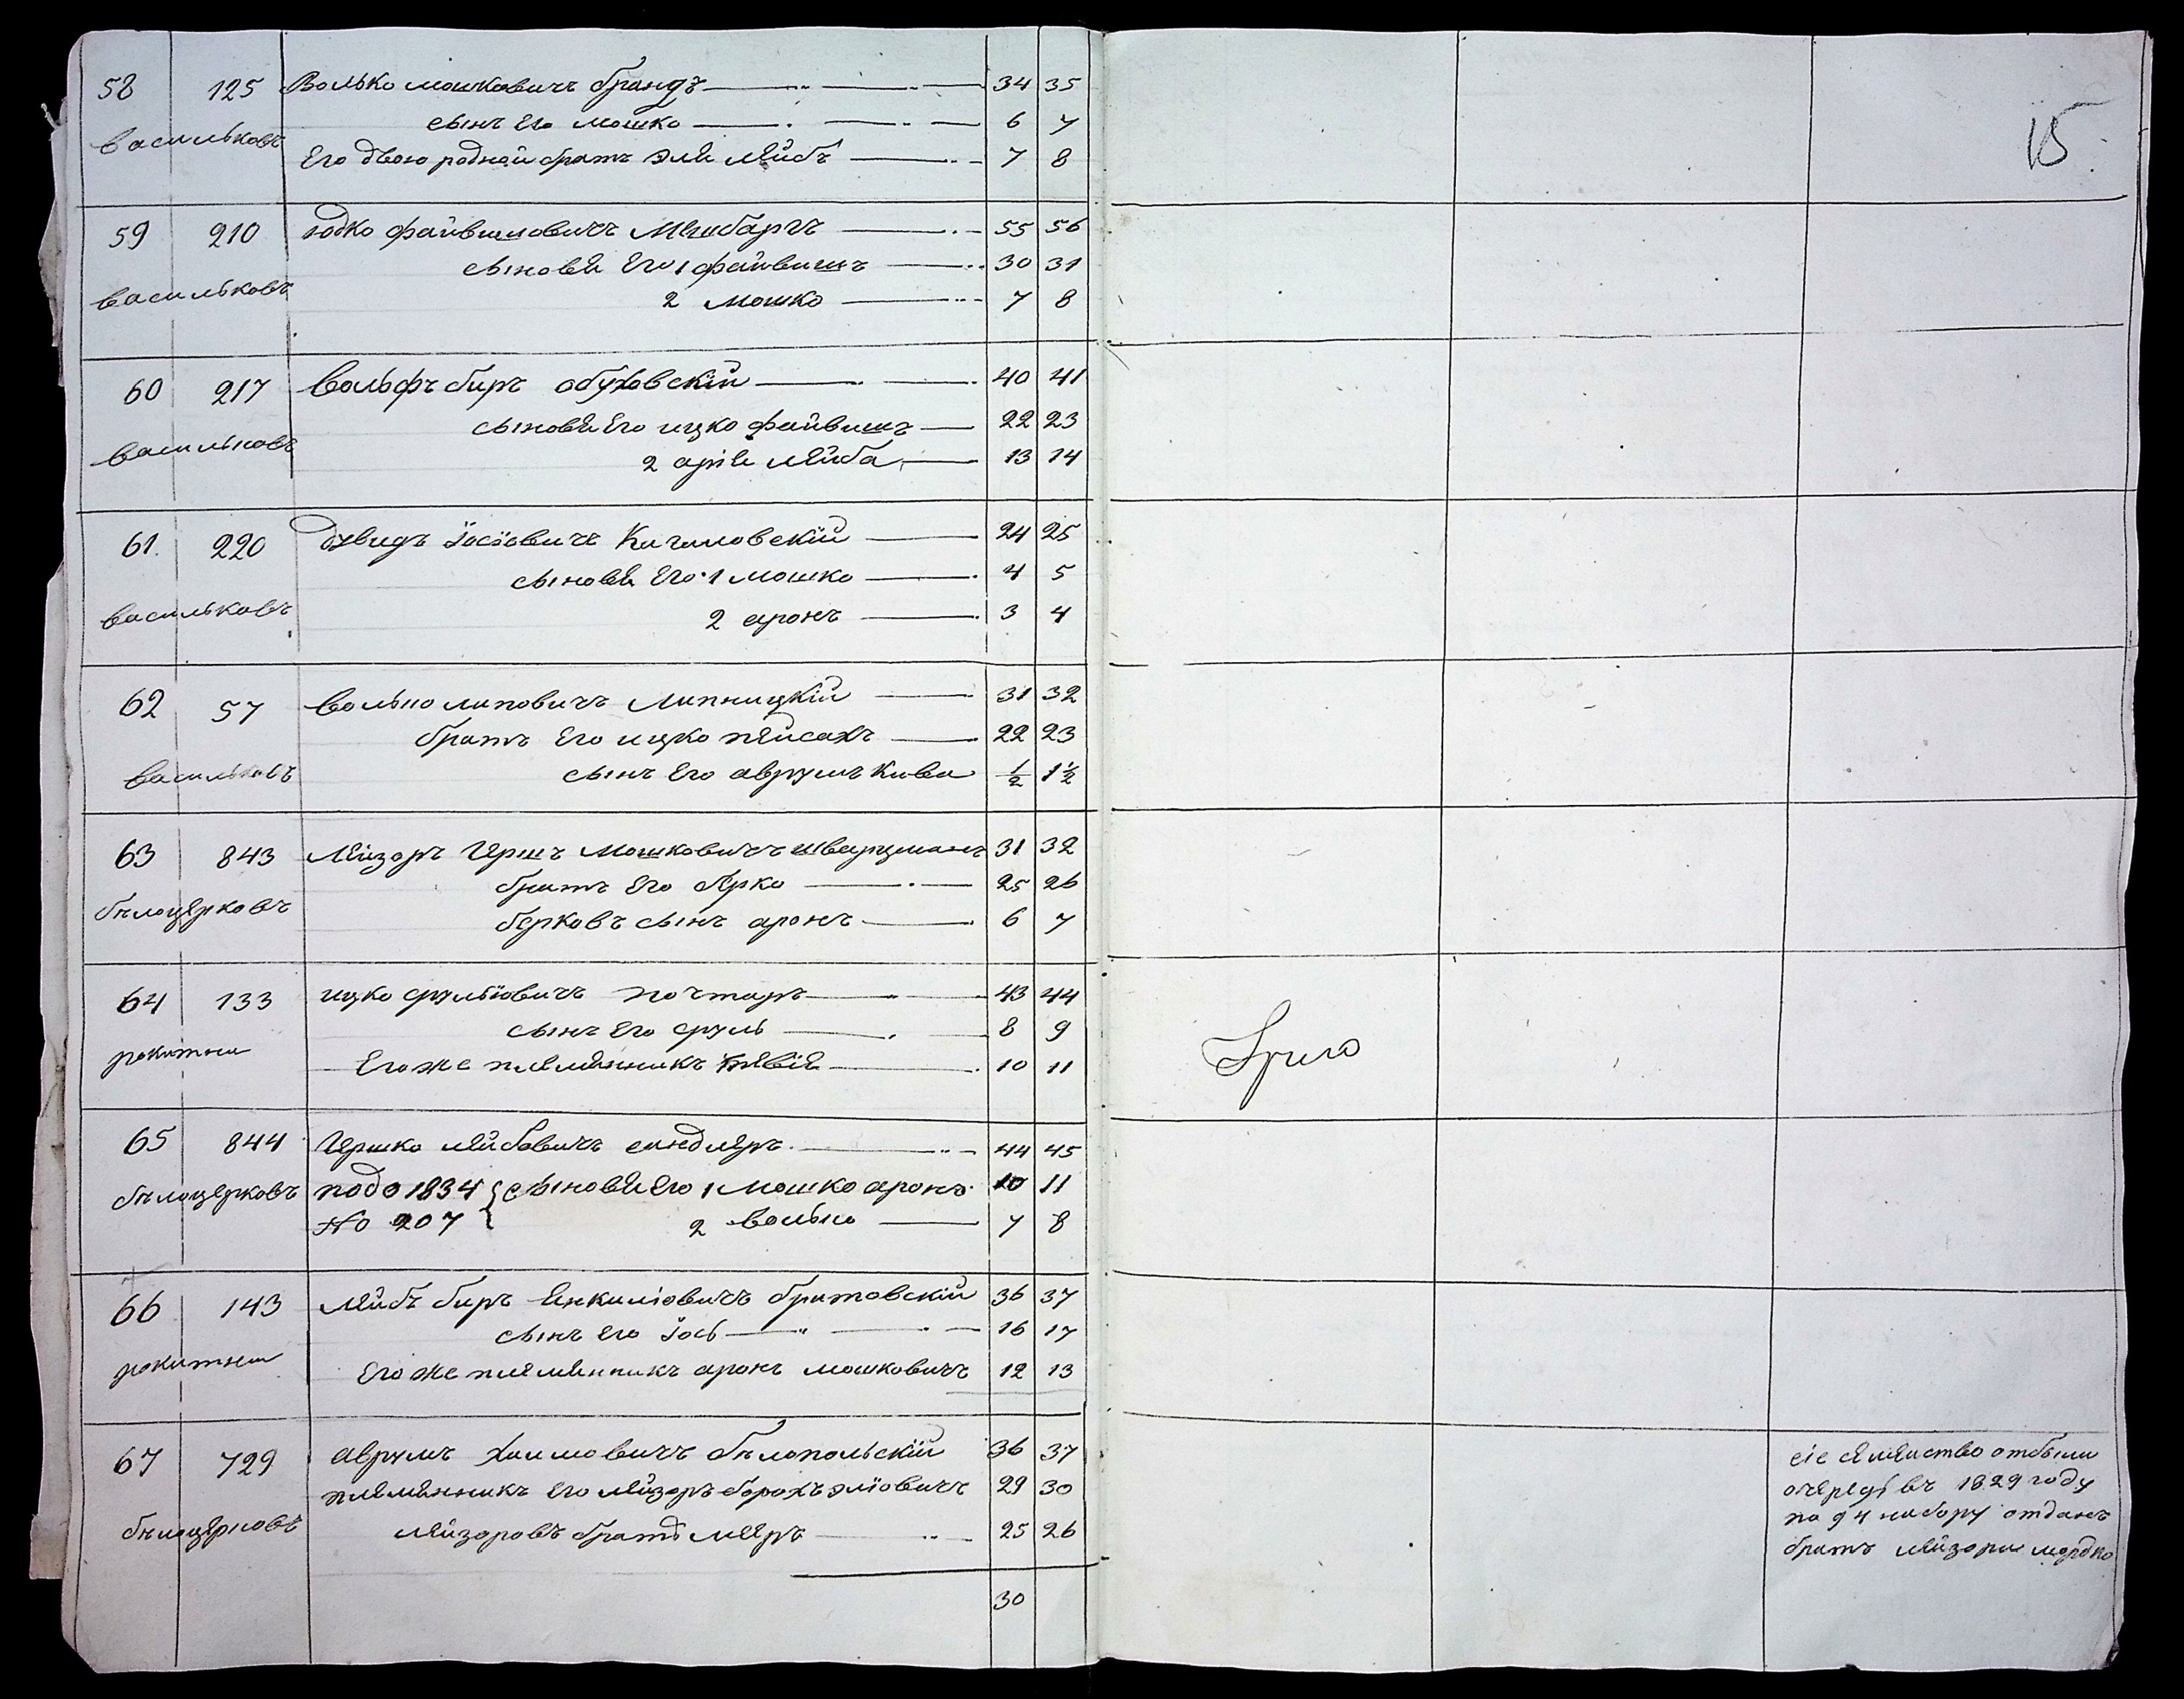 58 125 Волько мошковичъ брандъ 34 35
васильковъ
сынъ его мошко 6 7
Его двою родной братъ эле лейбъ 7 8
15
59 210 юдко файвишовичъ 55 56
васильковъ
сыновя его 1 файвишъ 30 31
2 мошко 7 8
60 217 вольфъ биръ обуховскій 40 41
васильковъ
сыновя его ицко файвишъ 22 23
2 аріе лейба 13 14
61. 220 дувидъ іосіовичъ Кагамовскій 24 25
васильковъ
сыновя его 1 мошко 4 5
2 аронъ 3 4
62 57 волько липовичъ липницкій 31 32
братъ его ицко пейсахъ 22 23
васильковъ
сынъ его аврумъ кива ½ 1½
63 843 лейзоръ гершъ мошковичъ шварцманъ 31 32
братъ его 25 26
бѣлоцерковъ
берковъ сынъ аронъ 6 7
64 133 ицко сруліовичъ почтаръ 43 44
сынъ его сруль 8 9
рокитни
Егоже племянникъ тевіе 10 11
65 844 гершко лейбовичъ сандлеръ 44 45
бѣлоцерковъ
подъ 1834 сыновя его 1 мошко аронъ 10 11
No 207 2 волько 7 8
66 143 лейбъ биръ Янкиліовичъ братовскій 36 37
сынъ его іось 16 17
рокитни
Егоже племянникъ аронъ мошковичъ 12 13
67 729 аврумъ хаимовичъ бѣлопольскій 36 37
племянникъ его лейзоръ борохъ эліовичъ 29 30
бѣлоцерковъ
лейзоровъ братъ мееръ 25 26
30
сіе семейство отбыли
очередь въ 1829 году
по 94 набору отданъ
братъ лейзора мордко